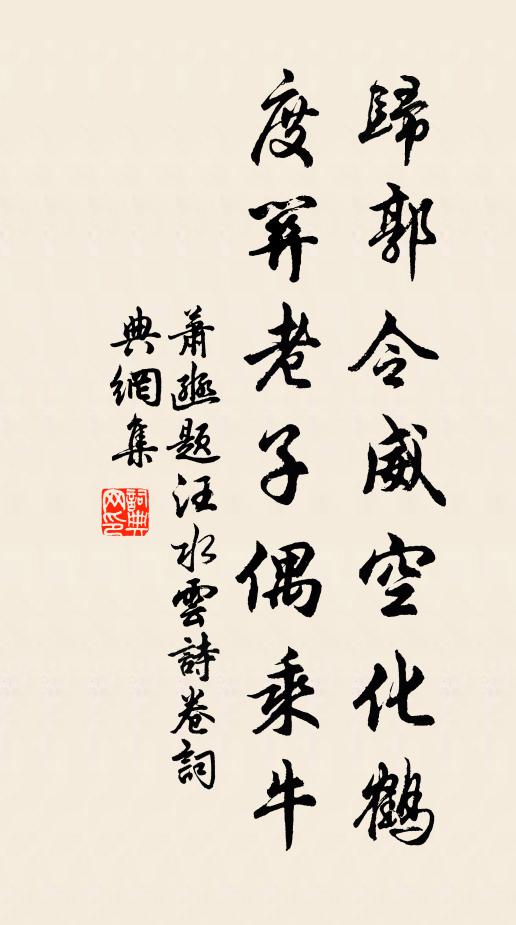 歸郭令威空化鶴
度關老子偶乘牛
蕭題汪水雲詩卷詞
典網集
詞典
网印